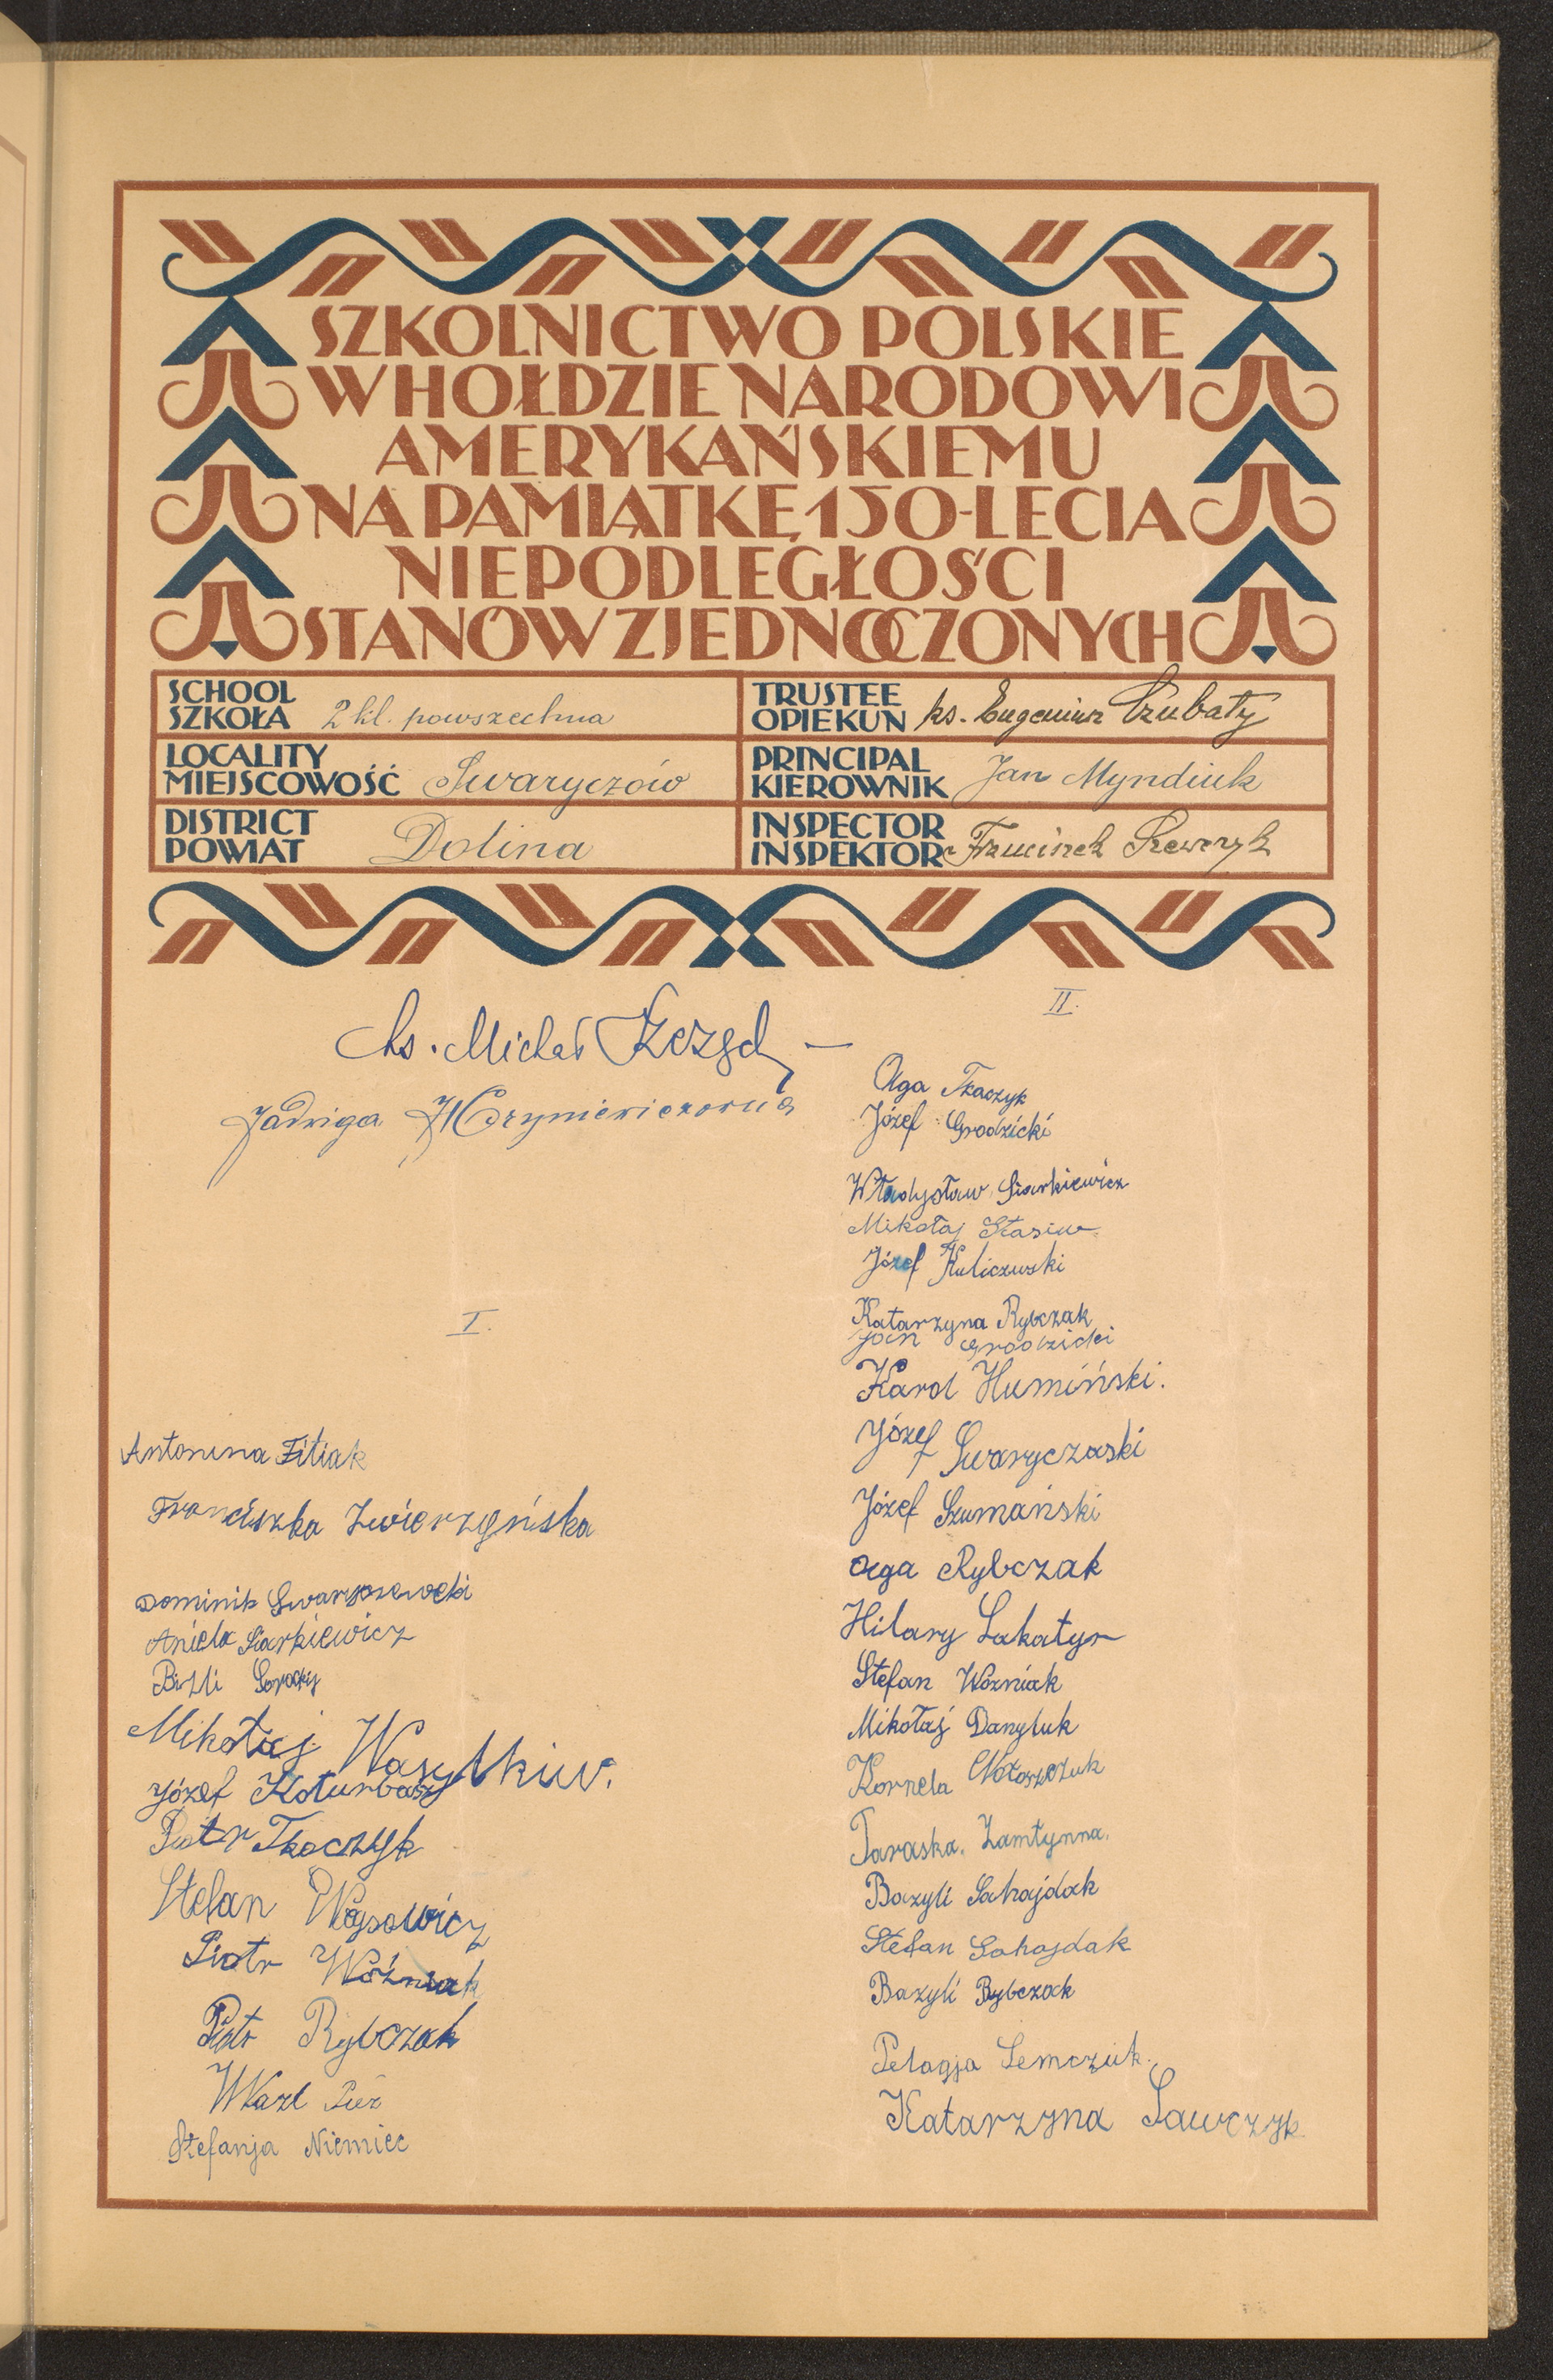 SZKOLNICTWO POLSKIE
W HOŁDZIE NARODOWI
AMERYKAŃSKIEMU
NA PAMIĄTKĘ 150-LECIA
NIEPODLEGŁOŚCI
STANÓW ZJEDNOCZONYCH
SCHOOL
SZKOŁA 2 kl. powszechna
LOCALITY
MIEJSCOWOŚĆ Swaryczów
DISTRICT
POWIAT Dolina
TRUSTEE
OPIEKUN ks. Eugeniusz Czubaty
PRINCIPAL
KIEROWNIK Jan Myndiuk
INSPECTOR
INSPEKTOR Franciszek Szewczyk
ks. Michał
Jadwiga
I.
Antonina Fitiak
Franciszka Zwierzyńska
Dominik Swaryczewski
Aniela Siarkiewicz
Mikołaj Wasylkiw.
Józef Koturbasz
Piotr Tkaczyk
Stefan Wąsowicz
Piotr Woźniak
Piotr Rybczak
Stefanja Niemiec
II.
Olga Tkaczyk
Józef Grodzicki
Władysław Siarkiewicz
Mikołaj Stasiw
Józef Kuliczwski
Katarzyna Rybczak
Jan Grodzicki
Karol Humiński.
Józef Swaryczaski
Józef Szumański
Olga Rybczak
Hilary Łakatyr
Stefan Woźniak
Mikołaj Danyluk
Kornela Wołoszczuk
Paraska. Zamłynna.
Bazyli Sahajdak
Stefan Sahajdak
Bazyli Rybczak
Pelagja Semczuk.
Katarzyna Sawczyk